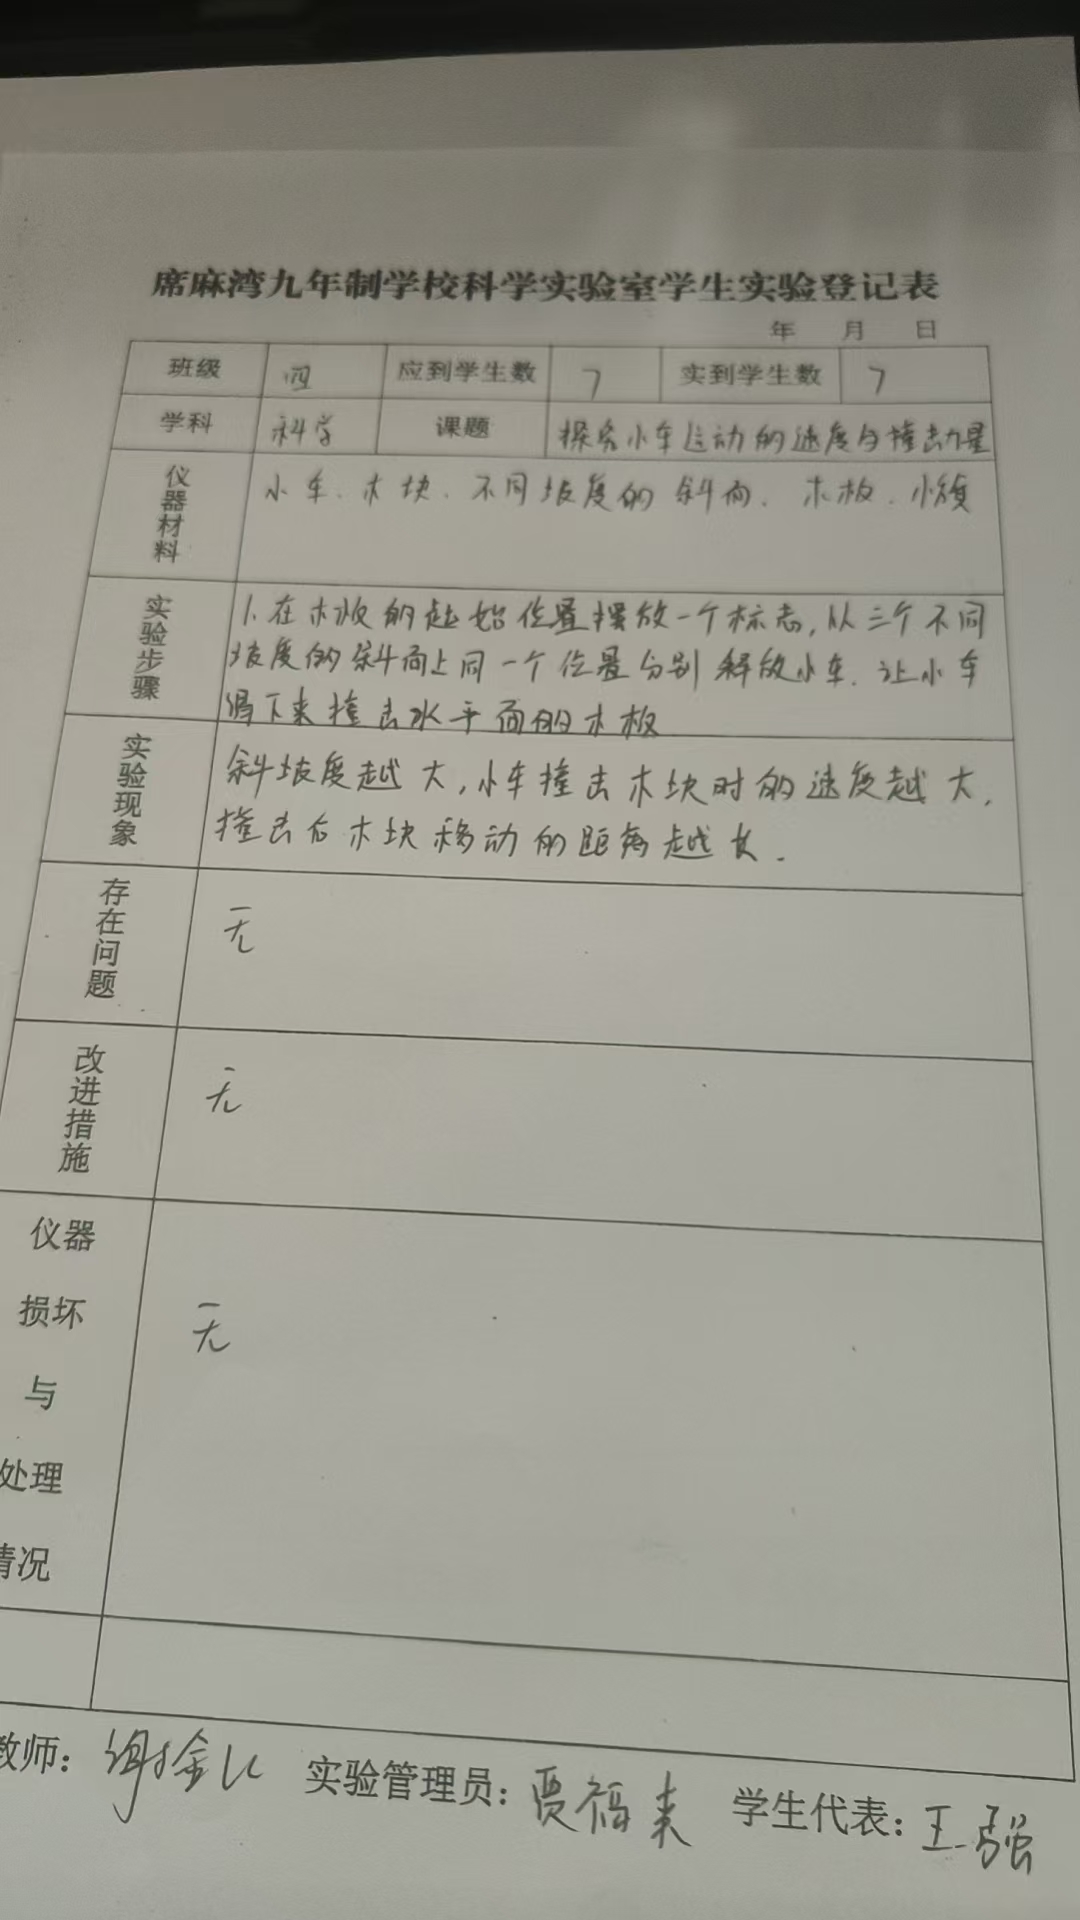 席麻湾九年制学校科学实验室学生实验登记表
年 月 日
班级 四 应到学生数 7 实到学生数 7
学科 科学 课题 探究小车运动的速度与撞击力量
仪器材料 小车、木块、不同坡度的斜面、木板、小旗
实验步骤
1.在木板的起始位置摆放一个标志,从三个不同
坡度的斜面上同一个位置分别释放小车、让小车
滑下来撞击水平面的木板
实验现象
斜坡度越大,小车撞击木块时的速度越大,
撞击后木块移动的距离越长.
存在问题 无
改进措施 无
仪器
损坏
与
处理
情况
无
教师: 实验管理员: 贾福来 学生代表: 王强